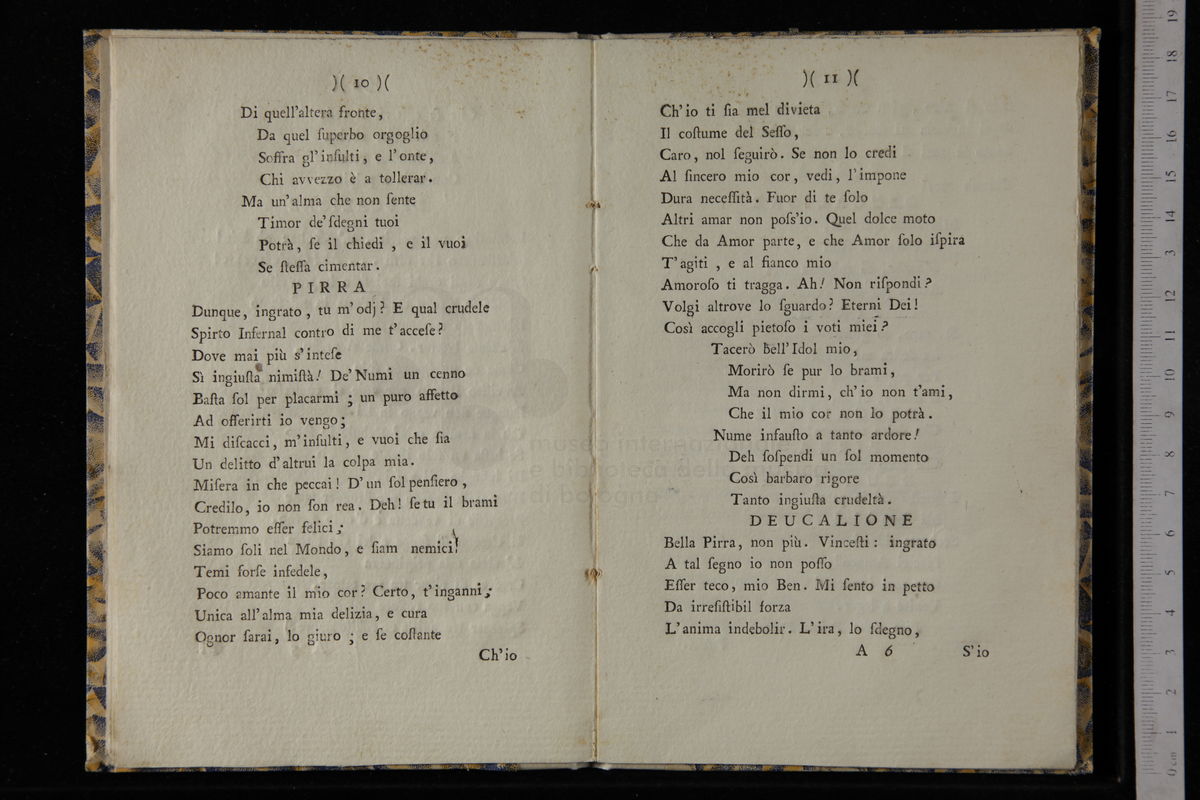 )( 10 )(
Di quell'altera fronte,
Da quel ſuperbo orgoglio
Soffra gl'inſulti, e l'onte,
Chi avvezzo è a tollerar.
Ma un'alma che non ſente
Timor de'ſdegni tuoi
Potrà, ſe il chiedi, e il vuoi
Se ſteſſa cimentar.
PIRRA
Dunque, ingrato, tu m'odj? E qual crudele
Spirto Infernal contro di me t'acceſe?
Dove mai più s'inteſe
Sì ingiuſta nimiſtà! De'Numi un cenno
Baſta ſol per placarmi; un puro affetto
Ad offerirti io vengo;
Mi diſcacci, m'inſulti, e vuoi che ſia
Un delitto d'altrui la colpa mia.
Miſera in che peccai! D'un ſol penſiero,
Credilo, io non ſon rea. Deh! ſe tu il brami
Potremmo eſſer felici;
Siamo ſoli nel Mondo, e ſiam nemici!
Temi forſe infedele,
Poco amante il mio cor? Certo, t'inganni;
Unica all'alma mia delizia, e cura
Ognor ſarai, lo giuro; e ſe coſtante
Ch'io
)( 11 )(
Ch'io ti ſia mel divieta
Il coſtume del Seſſo,
Caro, nol ſeguirò. Se non lo credi
Al ſincero mio cor, vedi, l'impone
Dura neceſſità. Fuor di te ſolo
Altri amar non poſs'io. Quel dolce moto
Che da Amor parte, e che Amor ſolo iſpira
T'agiti, e al fianco mio
Amoroſo ti tragga. Ah! Non riſpondi?
Volgi altrove lo ſguardo? Eterni Dei!
Così accogli pietoſo i voti miei?
Tacerò bell'Idol mio,
Morirò ſe pur lo brami,
Ma non dirmi, ch'io non t'ami,
Che il mio cor non lo potrà.
Nume infauſto a tanto ardore!
Deh ſoſpendi un ſol momento
Così barbaro rigore
Tanto ingiuſta crudeltà.
DEUCALIONE
Bella Pirra, non più. Vinceſti: ingrato
A tal ſegno io non poſſo
Eſſer teco, mio Ben. Mi ſento in petto
Da irreſiſtibil forza
L'anima indebolir. L'ira, lo ſdegno,
A 6 S'io